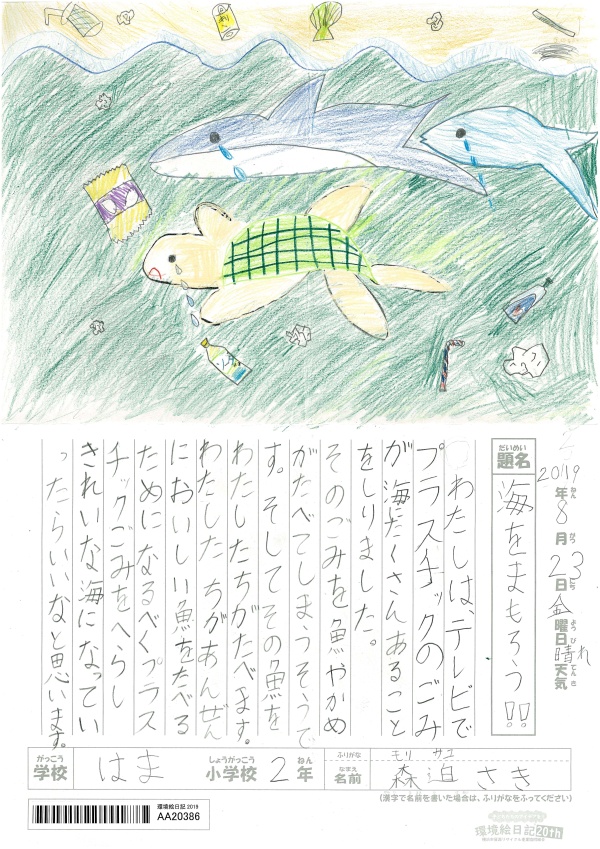 2019年8月23日金曜日晴れ天気
ねん がつ にち ようび てんき
だいめい
題名
海をまもろう!!
わたしは、テレビで
プラスチックのごみ
が海にたくさんあること
をしりました。
そのごみを魚やかめ
がたべてしまうそうで
す。そしてその魚を
わたしたちがたべます。
わたしたちがあんぜん
においしい魚をたべる
ためになるべくプラス
チックごみをへらし
きれいな海になってい
ったらいいなと思います。
がっこう しょうがっこう ねん
学校 はま 小学校 2年
ふりがな モリ サコ
なまえ
名前 森迫さき
(漢字で名前を書いた場合は、ふりがなをふってください)
環境絵日記 2019
AA20386
環境絵日記20th